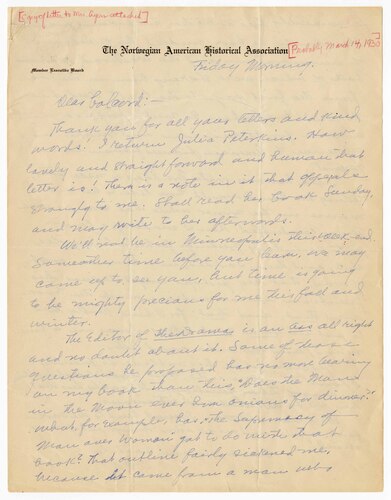 [Copy of letter to Mrs. Ayers attached]
The Norwegian American Historical Association
[Probably March 14, 1930]
Member Executive Board
Friday Morning.
Dear Colcord:—
Thank you for all your letters and kind
words! I return Julia Peterkins. How
lovely and straightforward and human that
letter is! There is a note in it that appeals
strongly to me. Shall read her book Sunday,
and may write to her afterwards.
We'll not be in Minneapolis this week-end.
Some other time before you leave, we may
come up to see you, but time is going
to be mighty precious for me this fall and
winter.
The Editor of The Dramas is an ass all right
and no doubt about it. Some of those
questions he proposed has no more bearing
on my book than this, "Does the Man
in the Moon ever Dim onions for dinner?"
What for example, has "The Supremacy of
Man over Woman" got to do with that
book? That outline fairly sickened me,
because it came from a man who